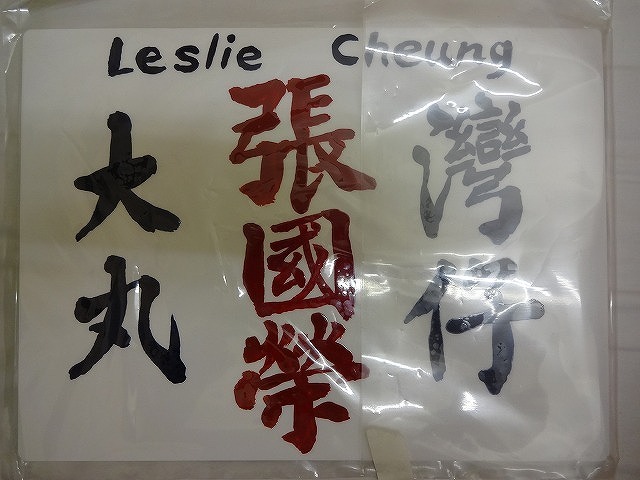 Leslie Cheung
灣仔
張國榮
大丸